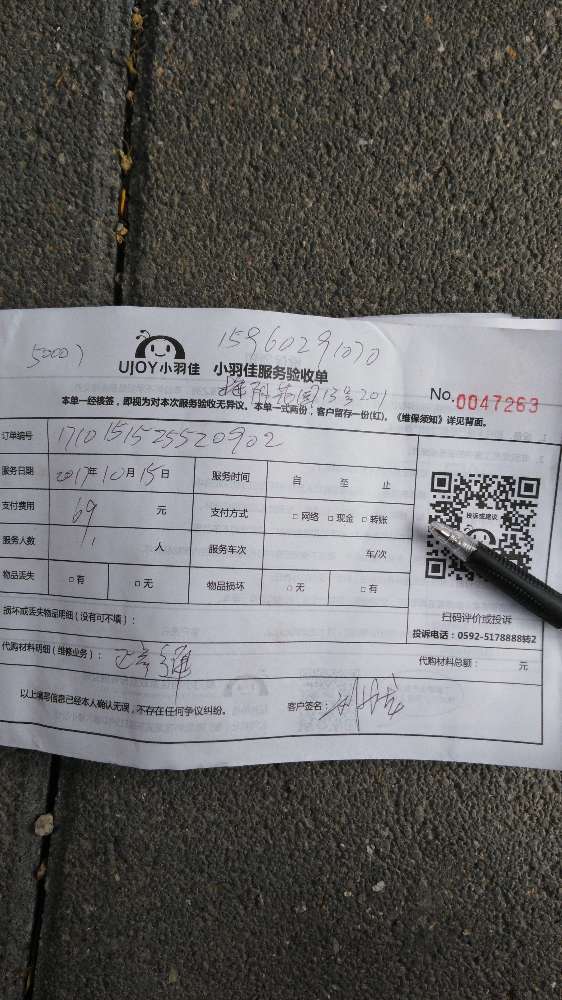 50007
15960291070
UJOY小羽佳 小羽佳服务验收单
园13号201
No.0047263
本单一经核签，即视为对本次服务验收无异议。本单一式两份，客户留存一份(红)。《维保须知》详见背面。
订单编号 1710151525520902
服务日期 2017年10月15日 服务时间 自 至 止
支付费用 69 元 支付方式 □网络 □现金 □转账
服务人数 1 人 服务车次 车/次
物品丢失 □有 □无 物品损坏 □无 □有
投诉或建议
扫码评价或投诉
投诉电话：0592-5178888转2
损坏或丢失物品明细（没有可不填）：
代购材料明细（维修业务）： 通 代购材料总额： 元
以上填写信息已经本人确认无误，不存在任何争议纠纷。 客户签名：